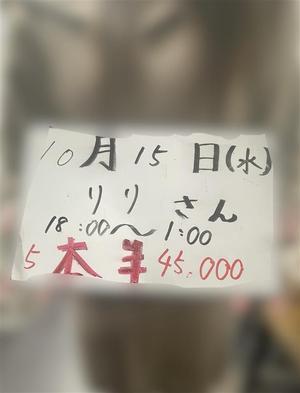 10月15日(水)
りりさん
18:00〜1:00
5 本半 45.000